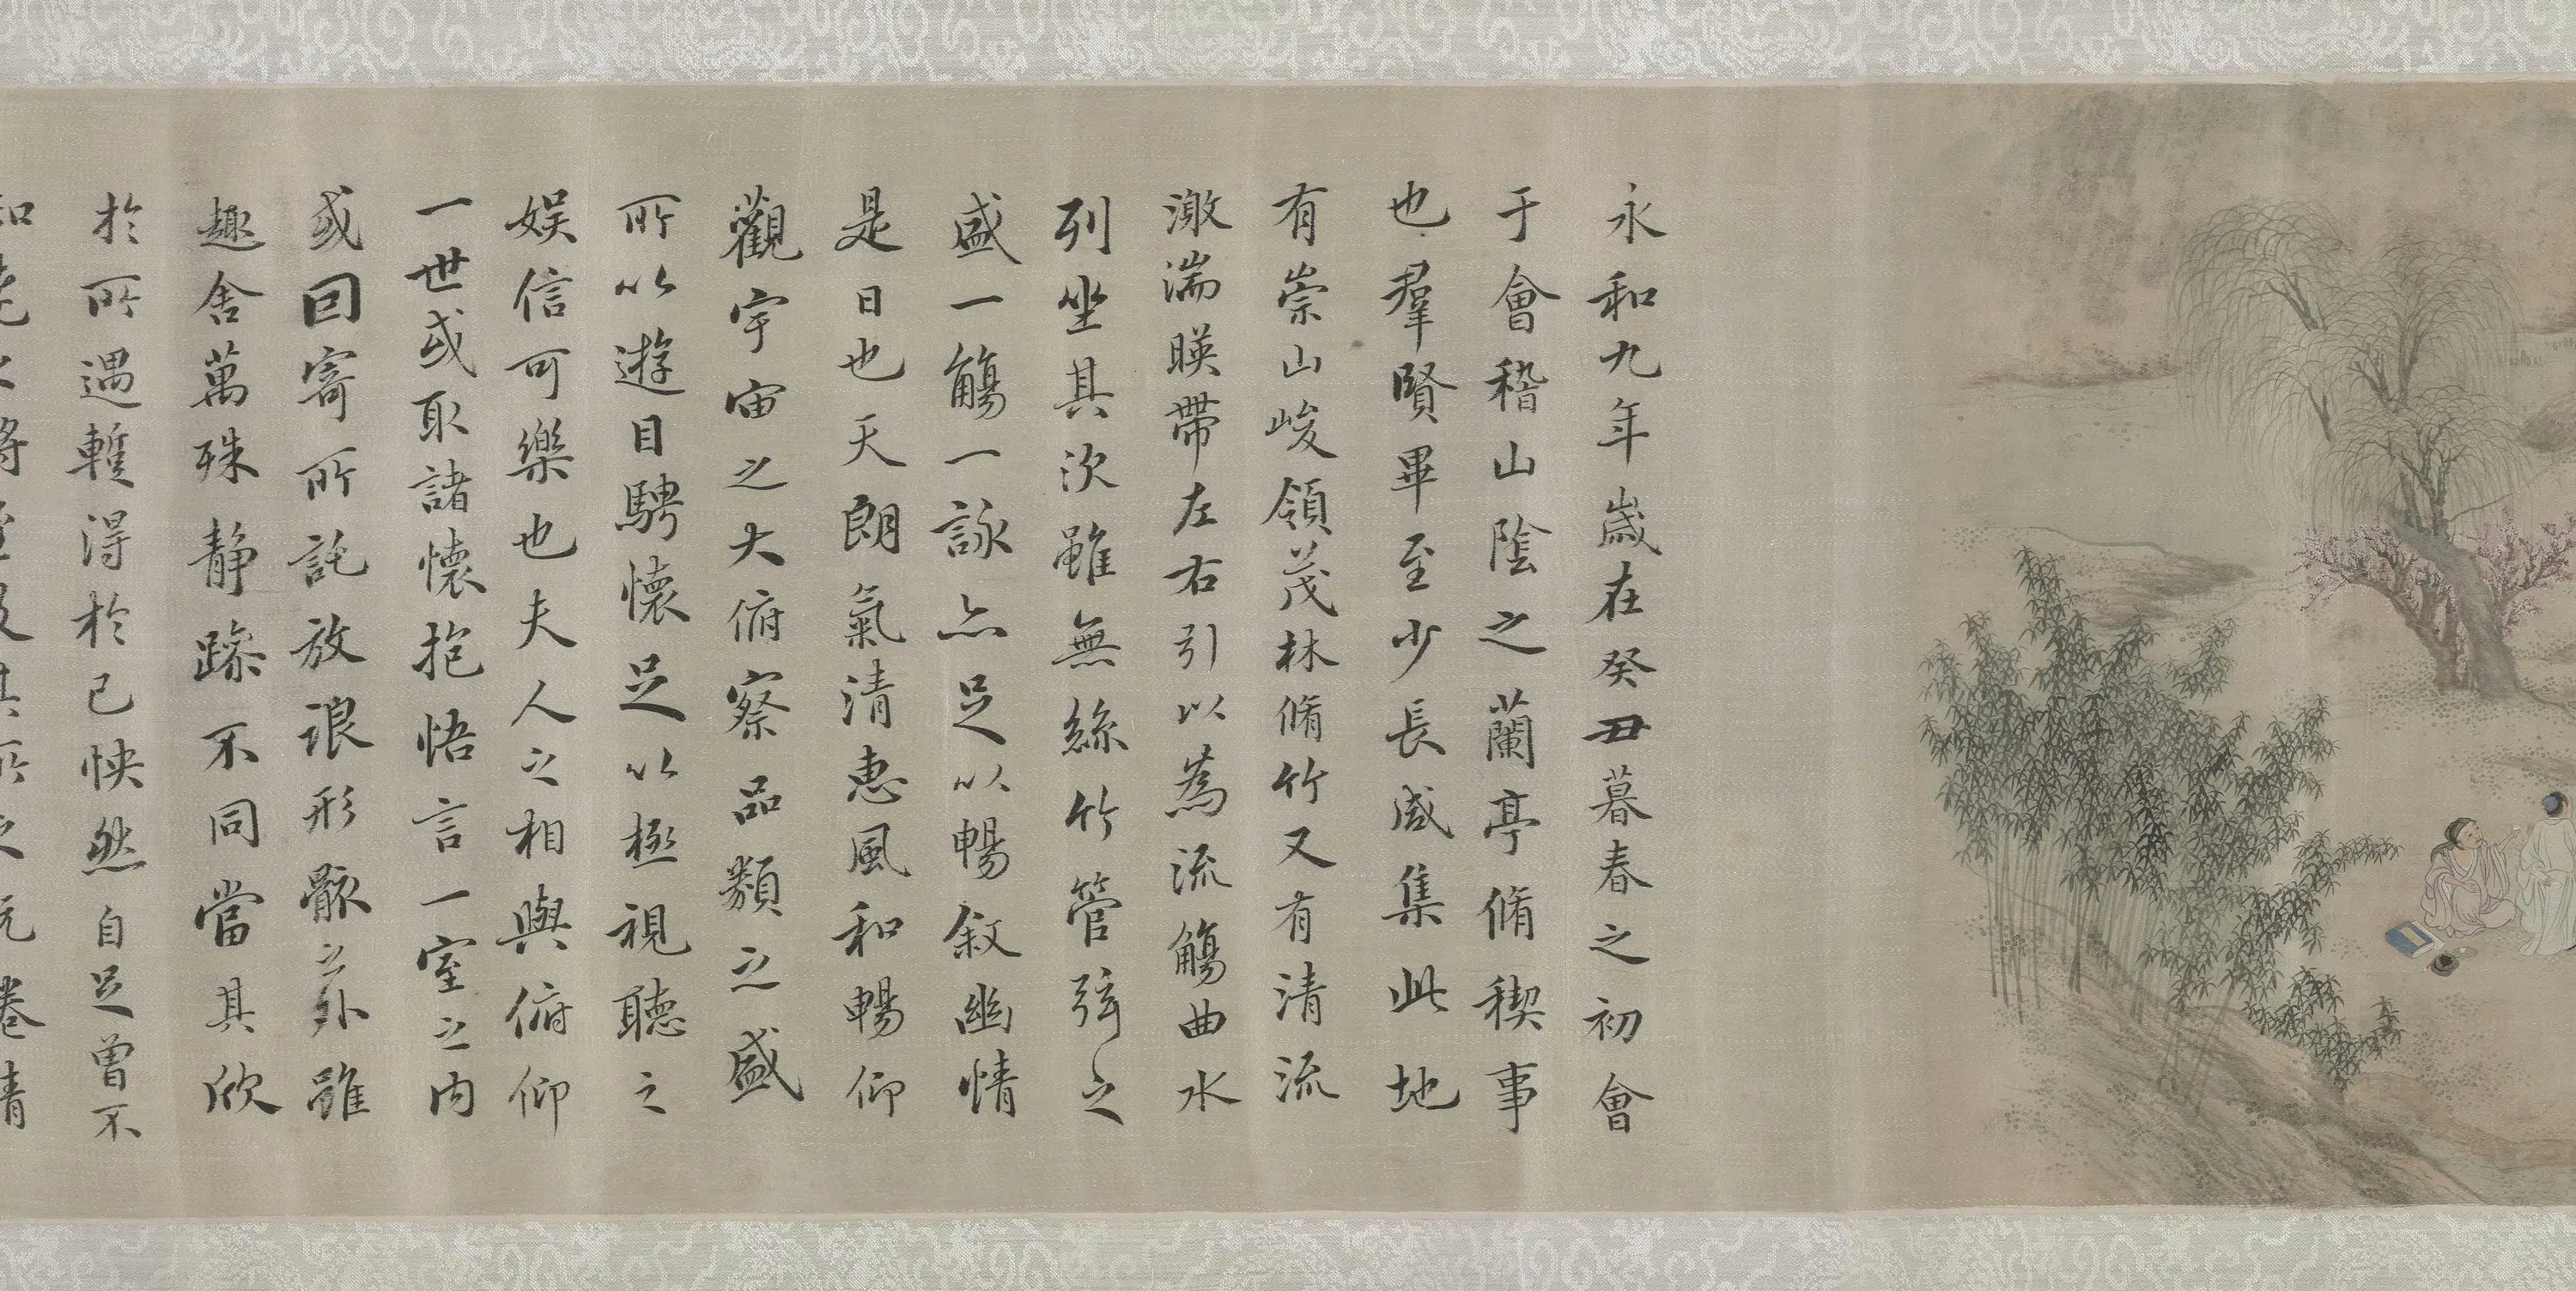 永和九年歲在癸丑暮春之初會
于會稽山陰之蘭亭脩稧事
也羣賢畢至少長咸集此地
有崇山峻領茂林脩竹又有清流
激湍暎帶左右引以為流觴曲水
列坐其次雖無絲竹管弦之
盛一觴一詠亦足以暢敘幽情
是日也天朗氣清惠風和暢仰
觀宇宙之大俯察品類之盛
所以遊目騁懷足以極視聽之
娛信可樂也夫人之相與俯仰
一世或取諸懷抱悟言一室之內
或因寄所託放浪形骸之外雖
趣舍萬殊静躁不同當其欣
於所遇蹔得於己怏然自足曾不
知老之將至及其所之既惓情